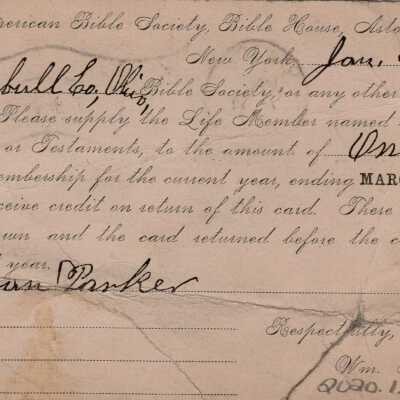 merican Bible Society, Bible House, Asto
New York, Jan.
bull Co, Ohio, Bible Society, or any other
Please supply the Life Member named
or Testaments, to the amount of On
embership for the current year, ending MARC
ceive credit on return of this card. These
wn and the card returned before the c
year.
an Parker
Respectfully,
Wm.
2020.1